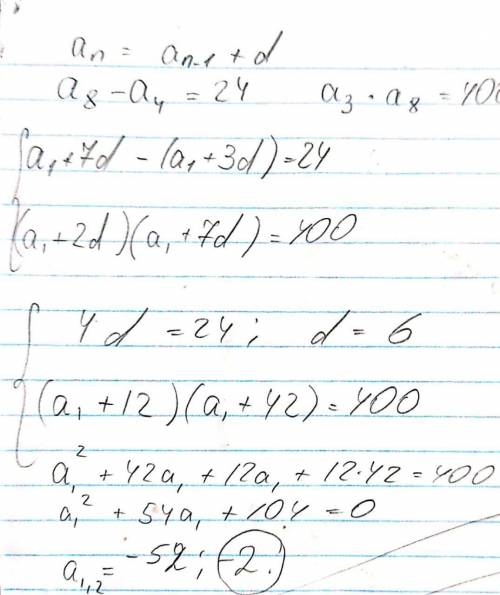 aₙ = aₙ₋₁ + d
a₈ - a₄ = 24 a₃ · a₈ = 400
a₁ + 7d - (a₁ + 3d) = 24
(a₁ + 2d)(a₁ + 7d) = 400
4d = 24; d = 6
(a₁ + 12)(a₁ + 42) = 400
a₁² + 42a₁ + 12a₁ + 12·42 = 400
a₁² + 54a₁ + 104 = 0
a₁,₂ = -52; -2.